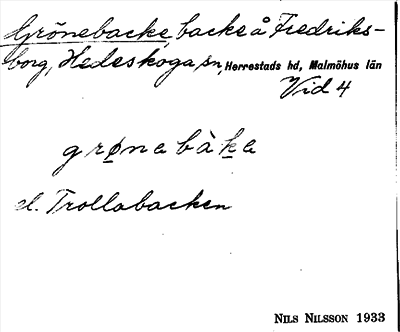 Grönebacke, backe å Fredriks-
borg, Hedeskoga sn, Herrestads hd, Malmöhus län
Vid 4
grønabàka
el. Trollabacken
NILS NILSSON 1933